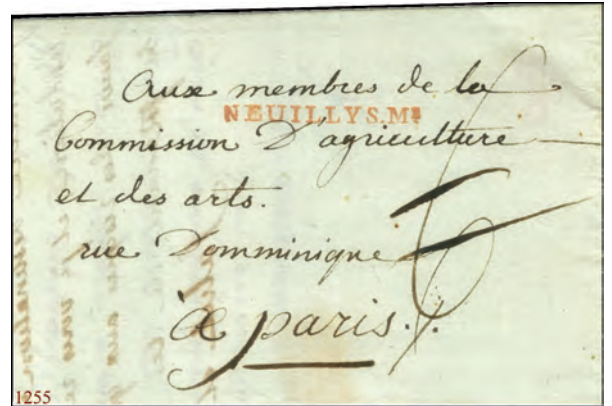 Aux membres de la
NEUILLY S. Mne
Commission D'agriculture
et des arts.
rue Domminique
à paris.
1255